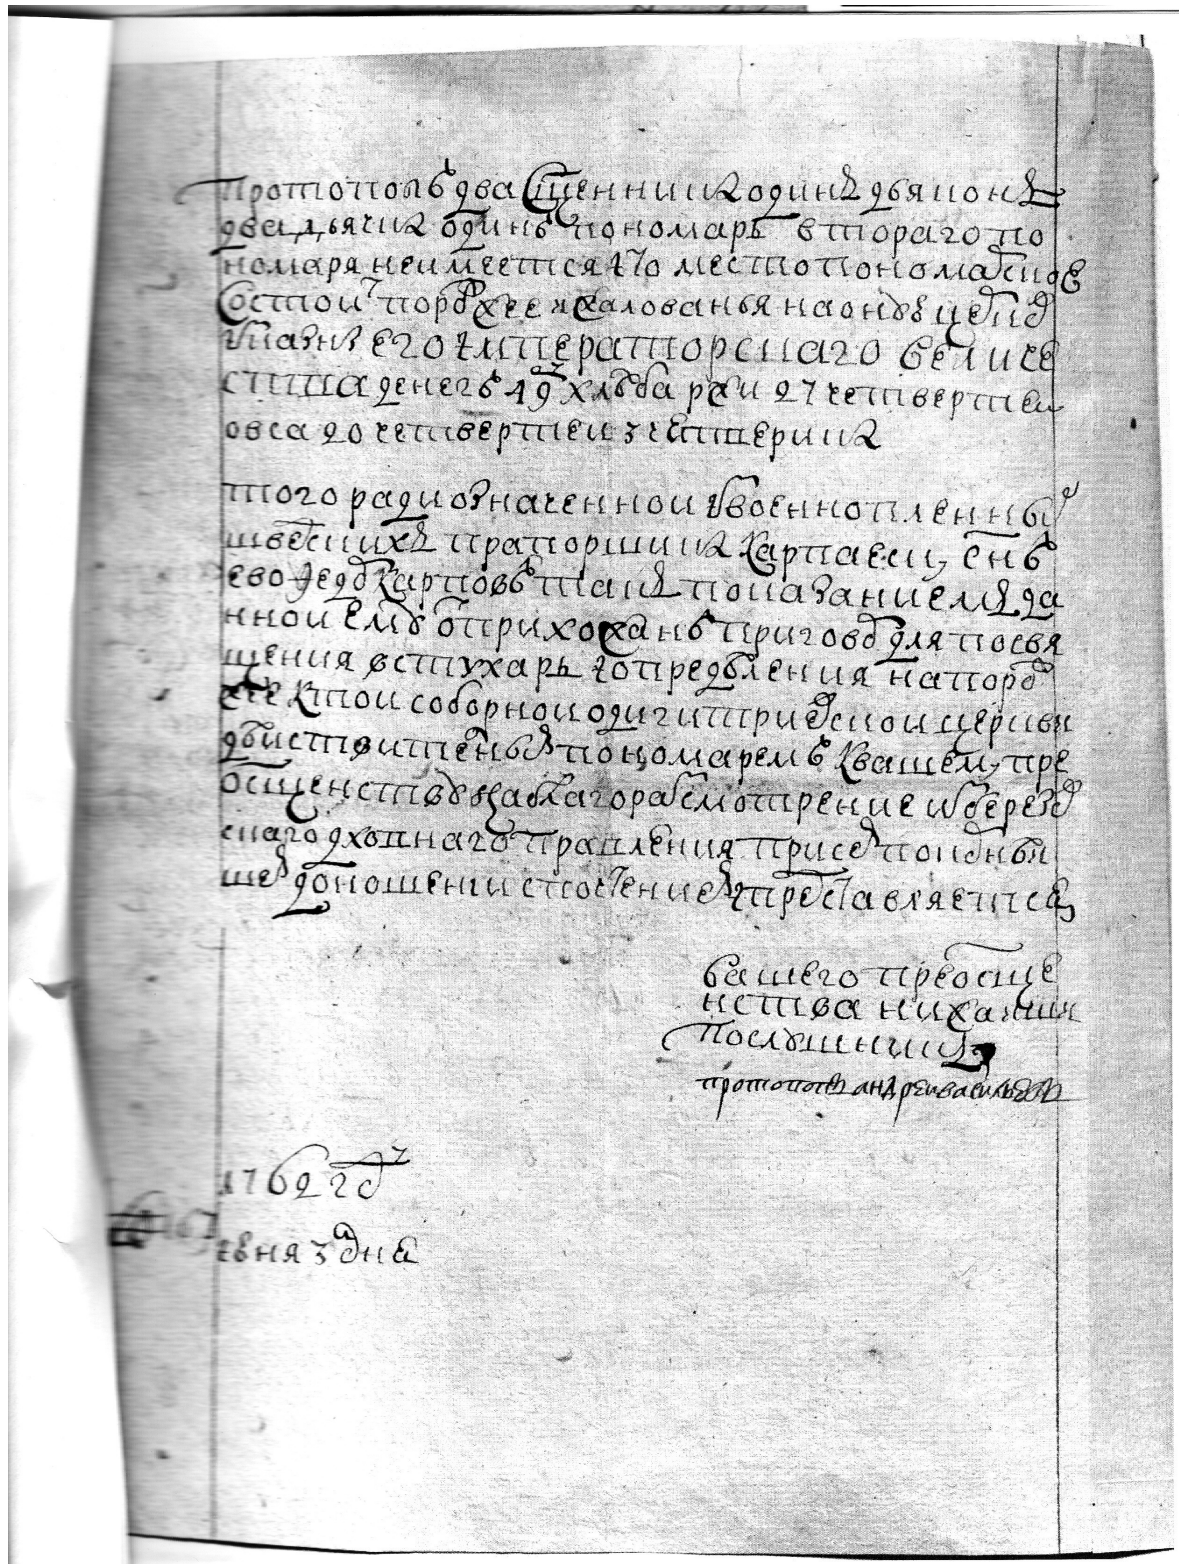 протопопъ два сщенника одинъ дьяконъ
два дьячка одинъ пономарь втораго по
номаря неимеется ѝ то место пономарское
состоит порозжее жалованья наоную црковь
указу его императорскаго величе
ства денегъ 49 хлѣба ржи 27 четвертеи
овса 20 четвертеи 3 четверика
того ради означеннои извоеннопленных
шведских прапорщика карпа сынъ
ево федоръ карповъ так показанием да
ннои ему от прихожанъ приговор для посвя
щения встухарь ѝ определения напороз
жее ктои соборнои одигитриевскои церкви
действительным пономаремъ квашему пре
освщенству на благоразсмотрение изберезов
скаго духовнаго правления присем покорнеи
шем доношении спочтением представляется
вашего преосще
нства нижаишии
послушникъ
протопопъ андреи васильевъ
1762 году
июня 3 дня